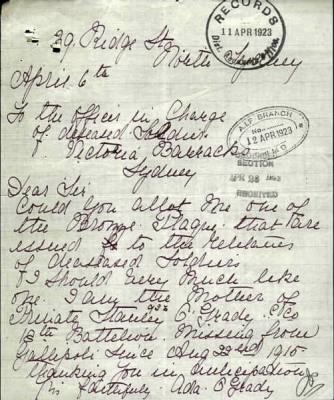 29 Ridge St
North Sydney
RECORDS
11 APR 1923
April 6th
To the Officer in Charge
of deceased Soldiers
Victoria Barracks
Sydney
A.I.F. BRANCH
No.
12 APR 1923
SECTION
APR 26 1923
Dear Sir
Could You allot Me one of
the Bronze Plaque that are
issued to the relatives
of deaceased Soldiers
I should Very Much like
one. I am the Mother of
Private Stanley O'Grady
Battalion. Missing from
Gallipoli Since Aug 22nd 1915
Thanking You in Anticipation
Yrs faithfully Ada O'Grady